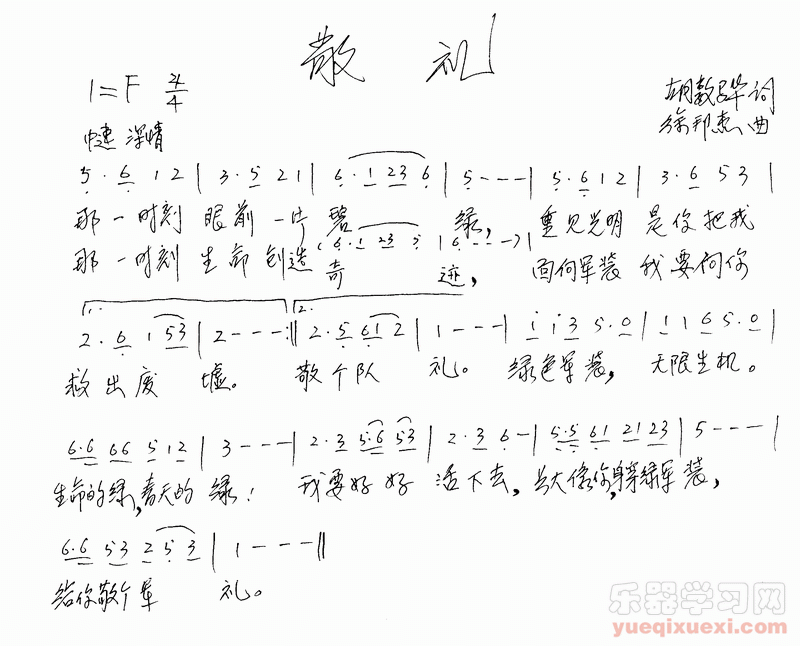 敬礼
1=F 4/4
胡敬华词
徐邦杰曲
中速 深情
5·6 1 2 | 3·5 2 1 | 6·1 23 6 | 5 - - - | 5·6 1 2 | 3·6 5 3 |
那一时刻 眼前一片碧 绿, 重见光明 是你把我
(6·1 23 5 | 6 - - -) |
那一时刻 生命创造奇 迹, 面向军装 我要向你
1. 2.
2·6 1 53 | 2 - - - :|| 2·5 61 2 | 1 - - - | i i 3 5·0 | i i 6 5·0 |
救出废 墟。 敬个队 礼。 绿色军装, 无限生机。
6·6 66 5 12 | 3 - - - | 2·3 5·6 53 | 2·3 6 - | 5·5 61 21 23 | 5 - - - |
生命的绿,春天的 绿! 我要好好 活下去, 长大像你,身穿绿军装,
6·6 53 2 5 3 | 1 - - - ||
给你敬个军 礼。
乐器学习网
yueqixuexi.com